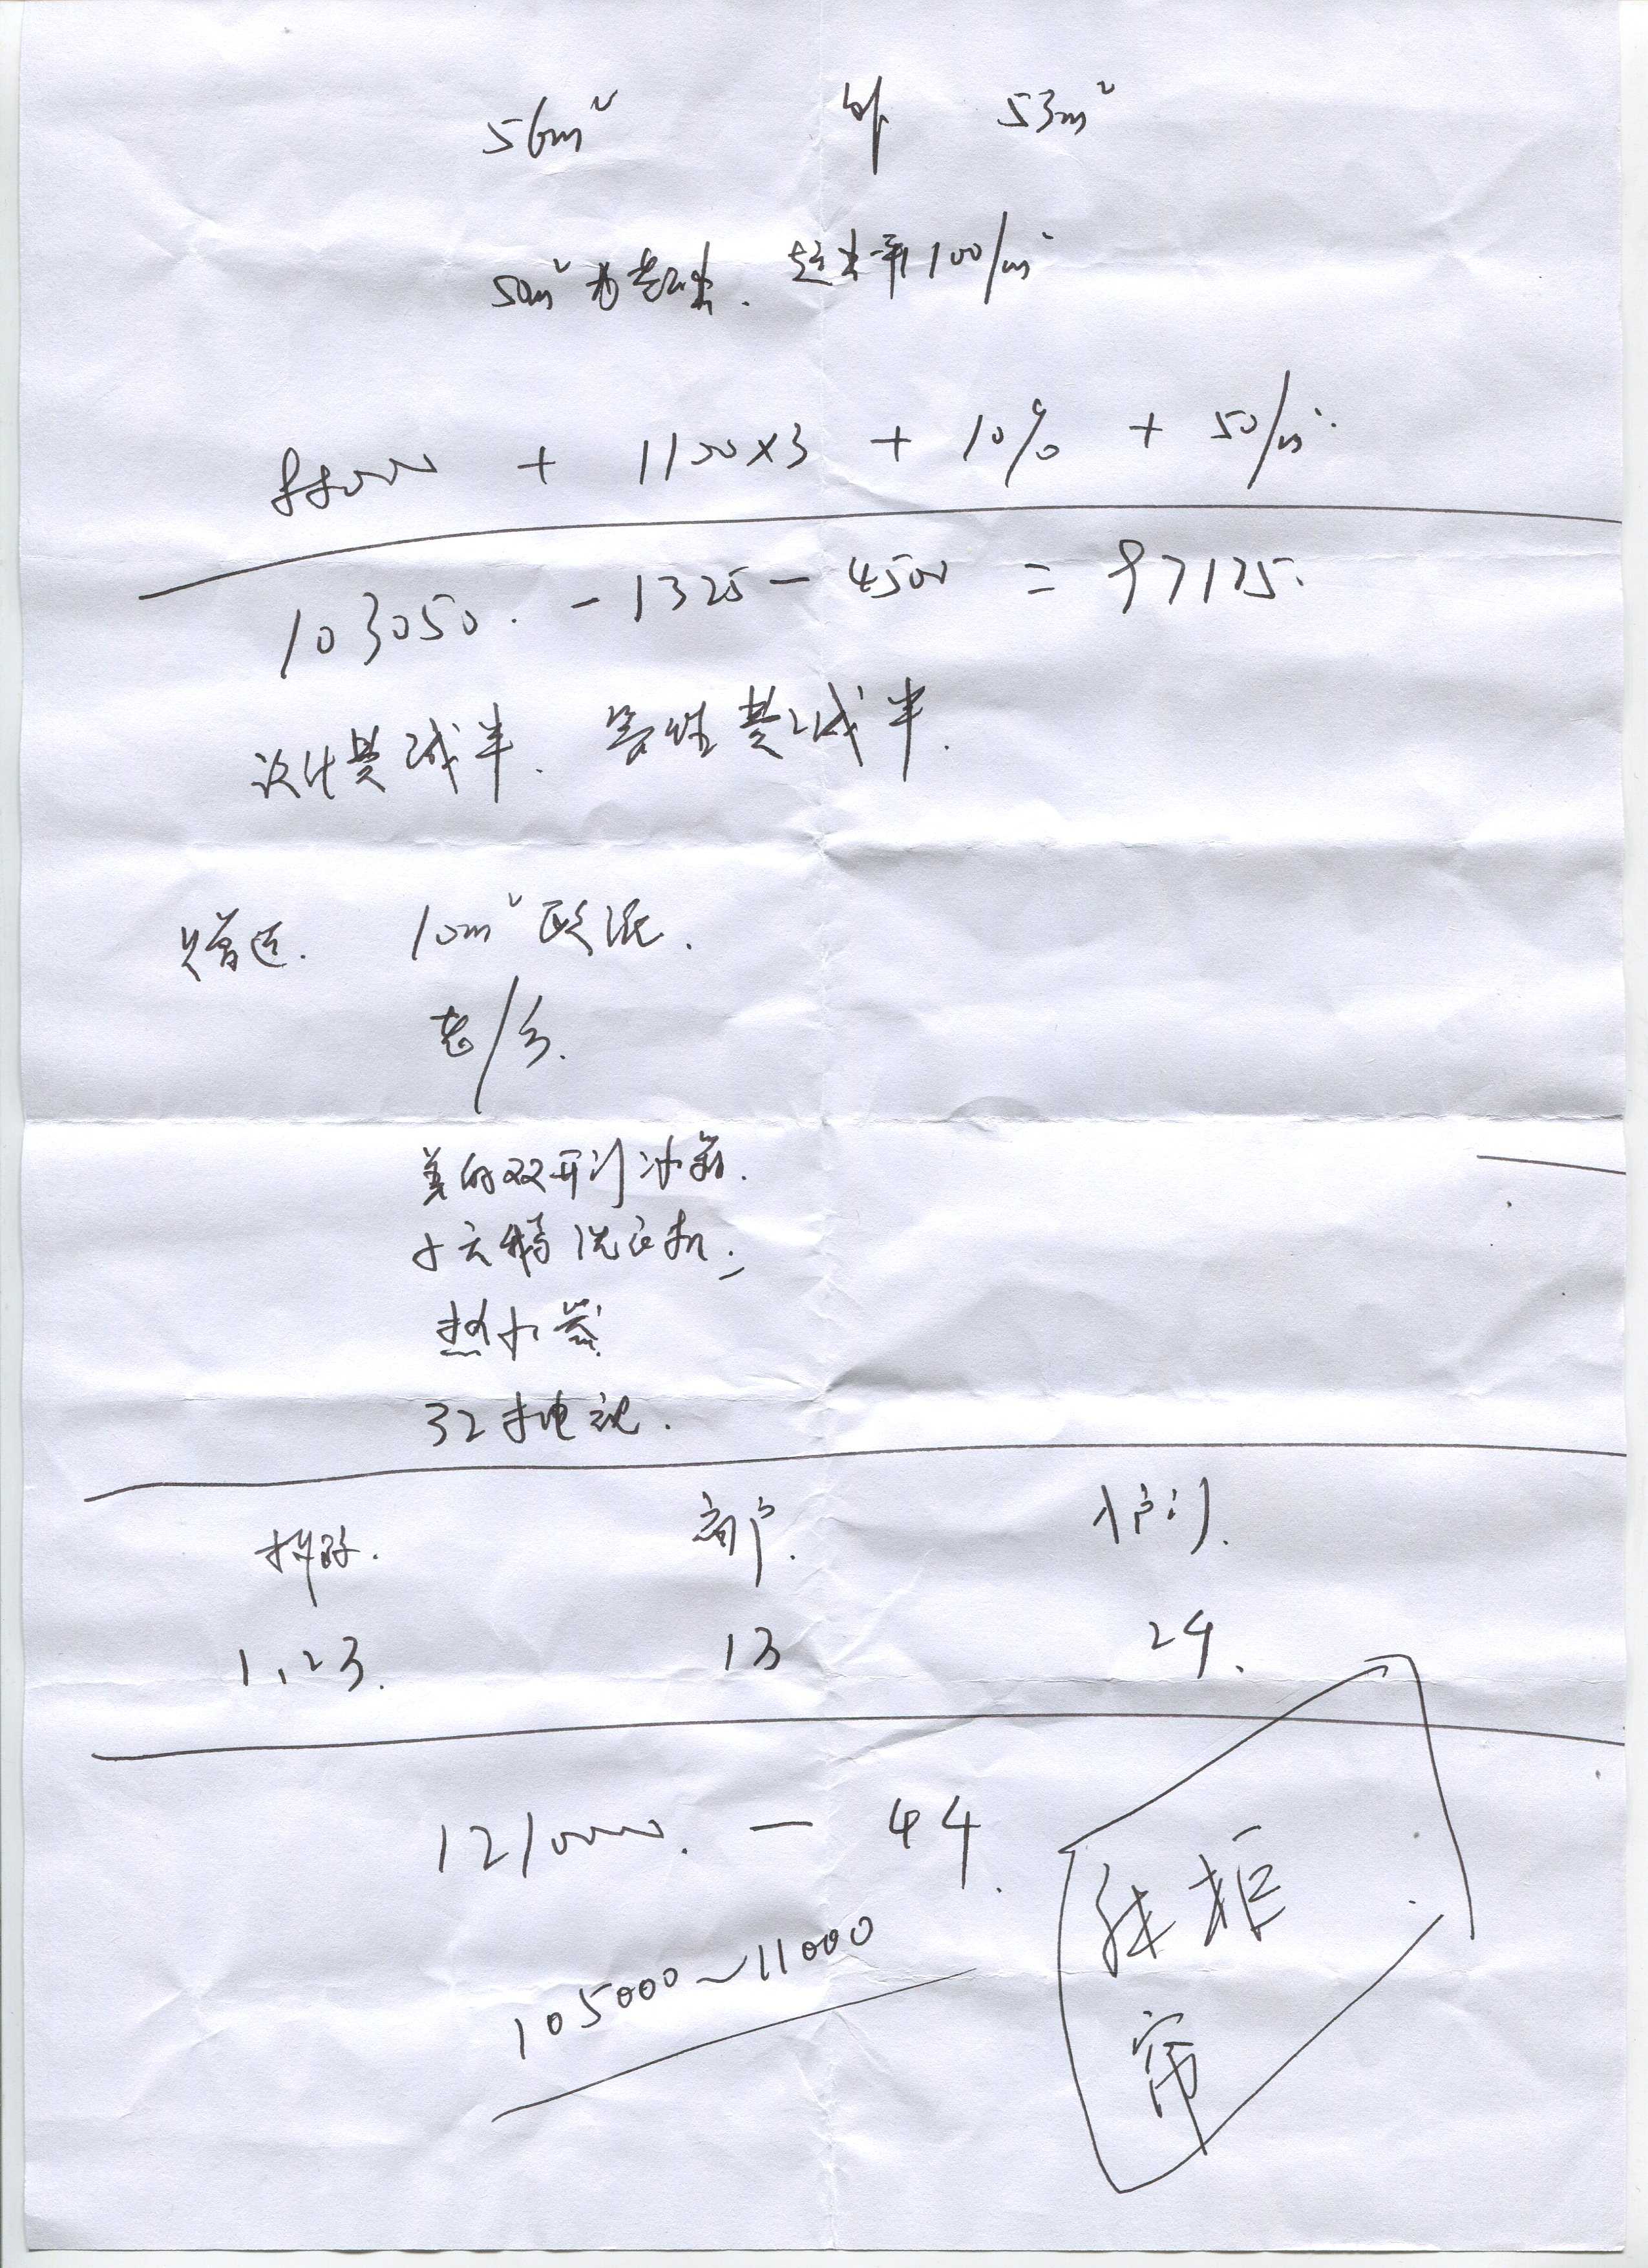 56m² 53m²
50m²为起点. 超出部 1100/m²
88000 + 1100×3 + 10% + 50/m².
103050. - 1325 - 4500 = 97175.
设计费减半. 管理费减半.
赠送. 10m² 欧泥.
美的双开门冰箱.
小天鹅洗衣机.
热水器
32寸电视.
拆改. 窗户. 入户门.
1,23. 13 24.
121000. - 44.
105000~11000
柜
帘